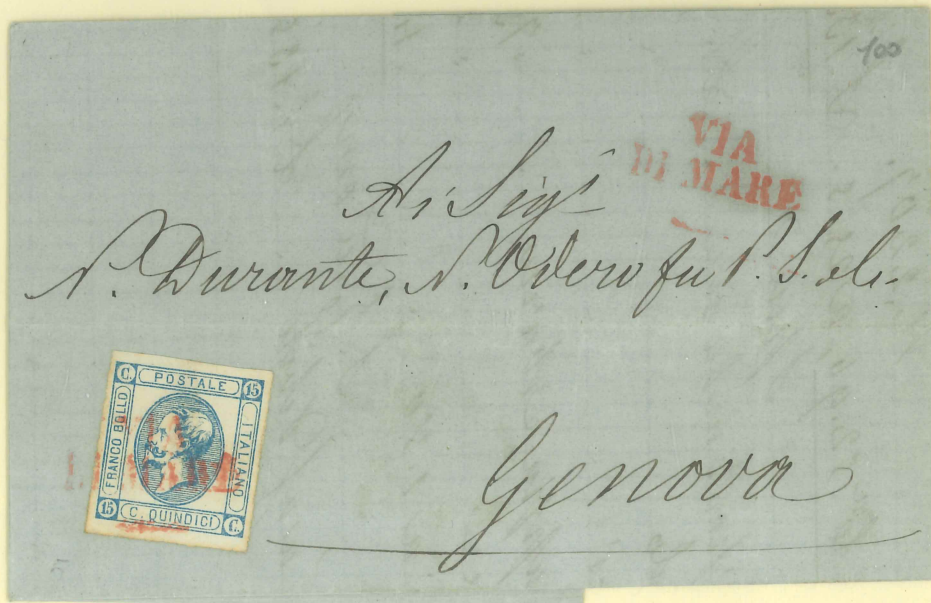 100
VIA
DI MARE
Ai Sigⁱ
N. Durante, N. Odero fu P. S. &c.
C. POSTALE 15
FRANCO BOLLO
ITALIANO
15 C. QUINDICI C.
Genova